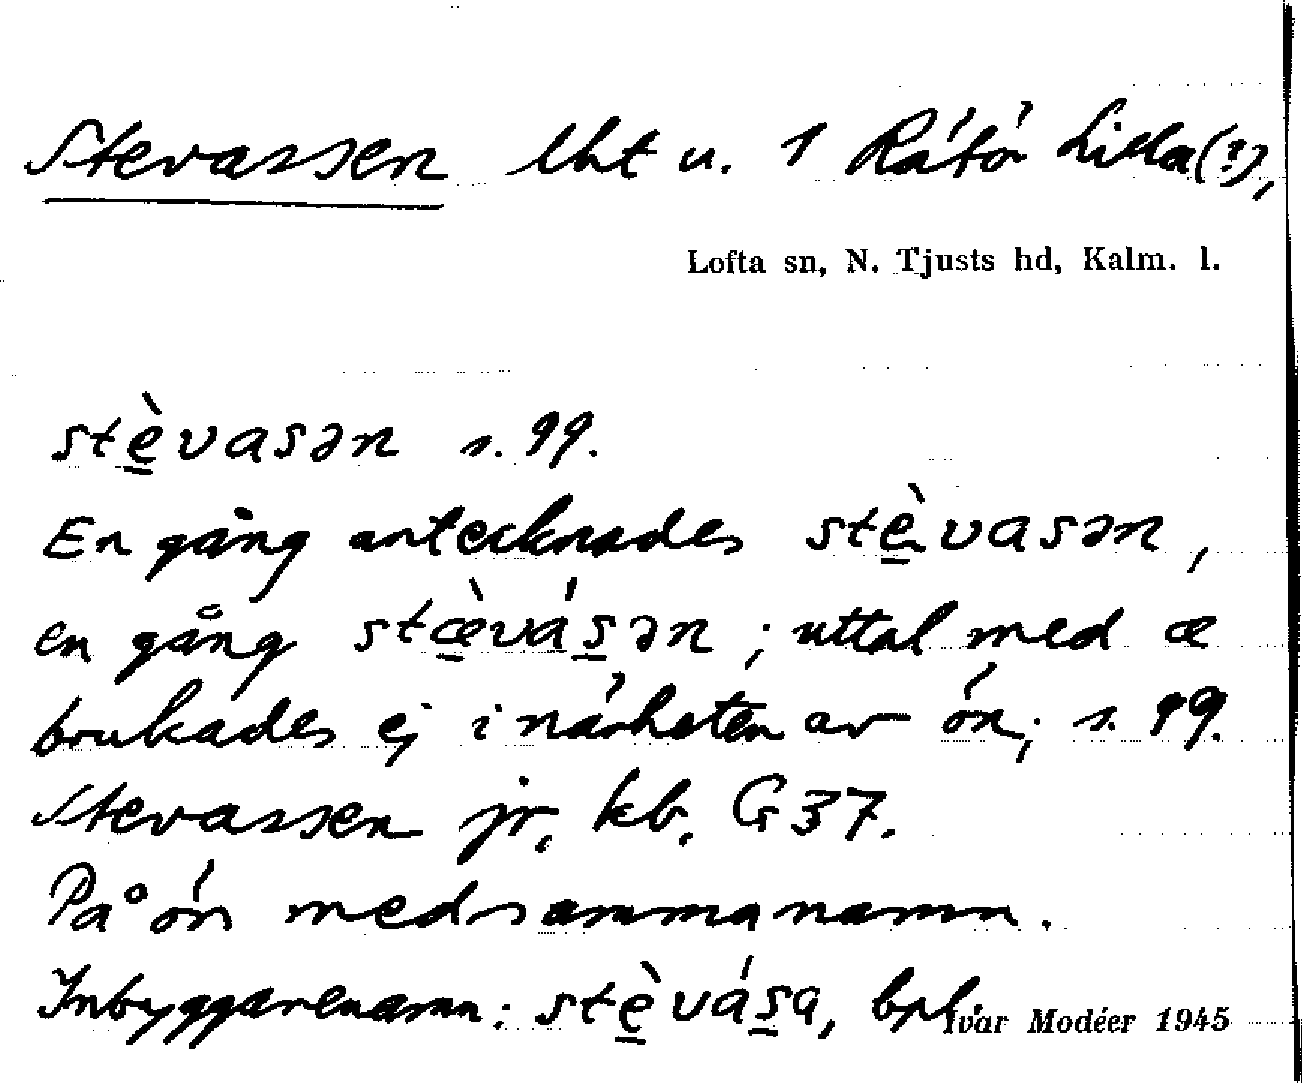 Stevassen lht u. 1 Rátó Lilla(?),
Lofta sn, N. Tjusts hd, Kalm. l.
stè̱vasən s. 99.
En gång antecknades stè̱vasən,
en gång stæ̱̀vás̱ən; uttal med æ
brukades ej i nárheten av ón; s. 99.
Stevassen jr, kb. G 37.
På ón med samma namn.
Inbyggarenamn: stè̱vás̱a, bpl.
Ivar Modéer 1945